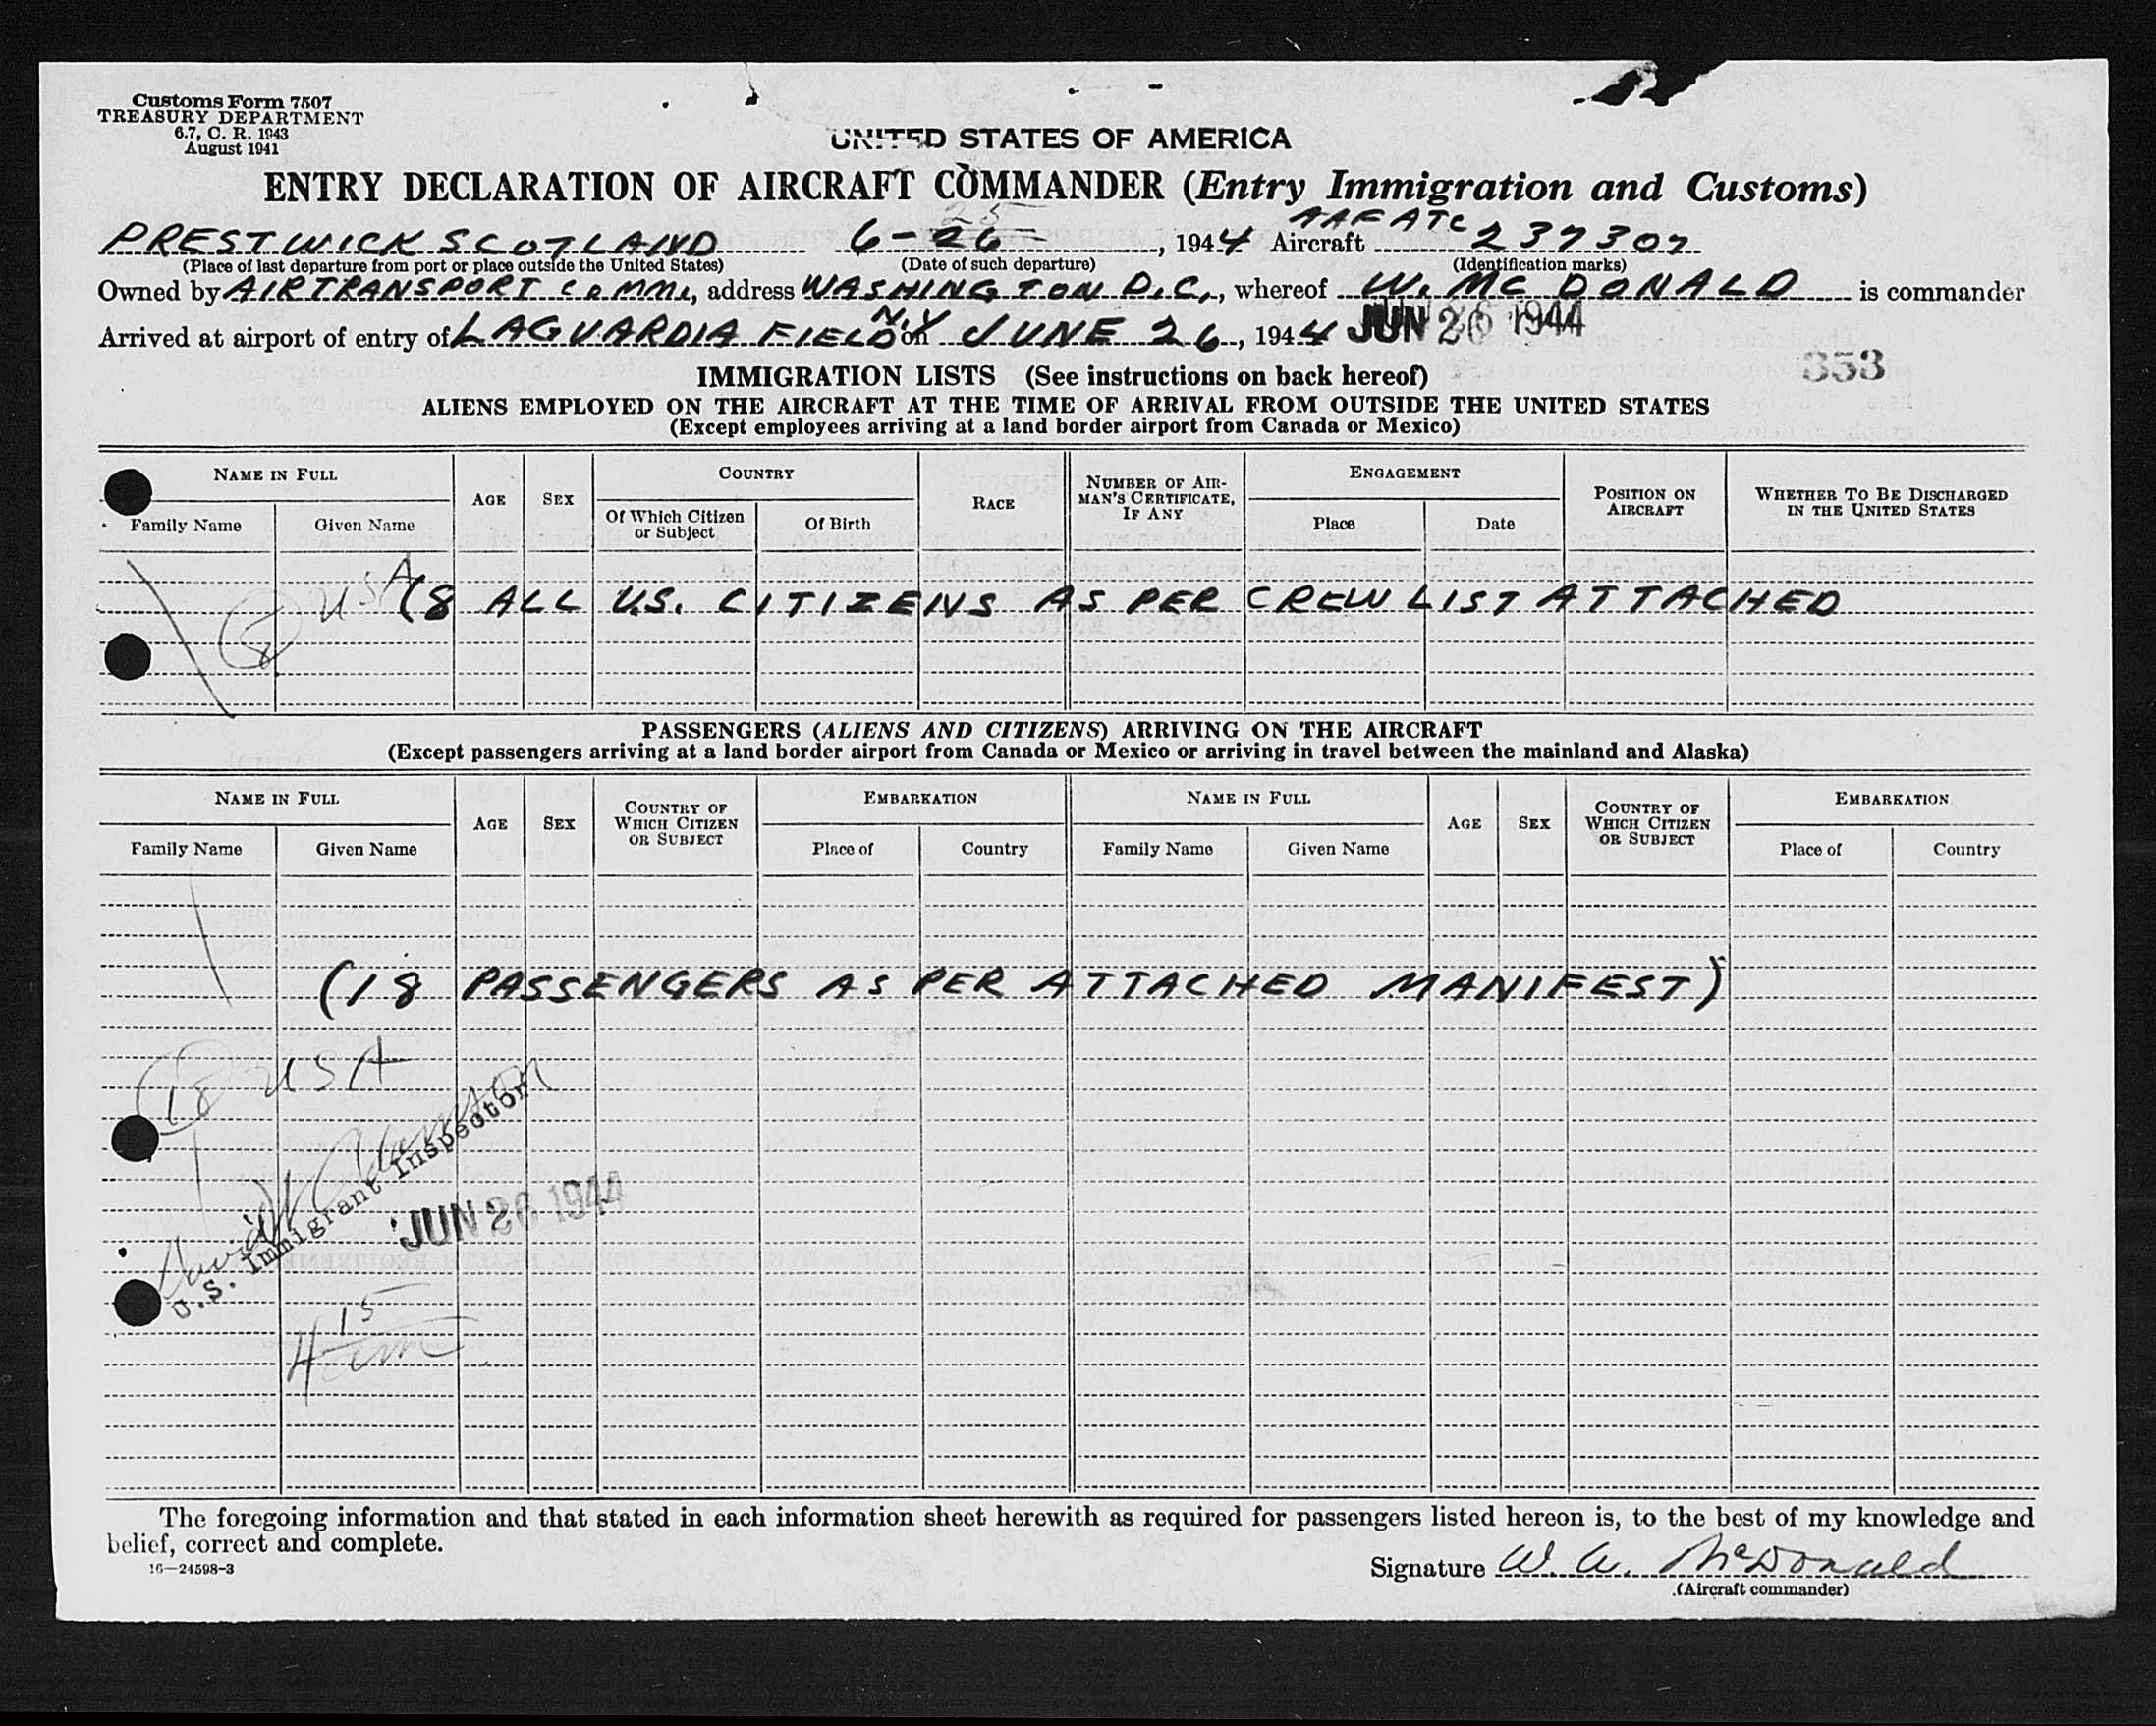 Customs Form 7507
TREASURY DEPARTMENT
6.7, C. R. 1943
August 1941
UNITED STATES OF AMERICA
ENTRY DECLARATION OF AIRCRAFT COMMANDER (Entry Immigration and Customs)
25
PRESTWICK SCOTLAND 6-26, 1944 Aircraft AAF ATC 237307
(Place of last departure from port or place outside the United States) (Date of such departure) (Identification marks)
Owned by AIRTRANSPORT COMM., address WASHINGTON D.C., whereof W. MC DONALD is commander
Arrived at airport of entry of LAGUARDIA FIELD N.Y on JUNE 26, 1944 JUN 26 1944
353
IMMIGRATION LISTS (See instructions on back hereof)
ALIENS EMPLOYED ON THE AIRCRAFT AT THE TIME OF ARRIVAL FROM OUTSIDE THE UNITED STATES
(Except employees arriving at a land border airport from Canada or Mexico)
NAME IN FULL AGE SEX COUNTRY RACE NUMBER OF AIRMAN'S CERTIFICATE, IF ANY ENGAGEMENT POSITION ON AIRCRAFT WHETHER TO BE DISCHARGED IN THE UNITED STATES
Family Name Given Name Of Which Citizen or Subject Of Birth Place Date
8 USA (8 ALL U.S. CITIZENS AS PER CREW LIST ATTACHED
PASSENGERS (ALIENS AND CITIZENS) ARRIVING ON THE AIRCRAFT
(Except passengers arriving at a land border airport from Canada or Mexico or arriving in travel between the mainland and Alaska)
NAME IN FULL AGE SEX COUNTRY OF WHICH CITIZEN OR SUBJECT EMBARKATION NAME IN FULL AGE SEX COUNTRY OF WHICH CITIZEN OR SUBJECT EMBARKATION
Family Name Given Name Place of Country Family Name Given Name Place of Country
(18 PASSENGERS AS PER ATTACHED MANIFEST)
18 USA
David
U.S. Immigrant Inspector
JUN 26 1944
4 15 am
The foregoing information and that stated in each information sheet herewith as required for passengers listed hereon is, to the best of my knowledge and
belief, correct and complete.
16—24598-3
Signature W. W. McDonald
(Aircraft commander)